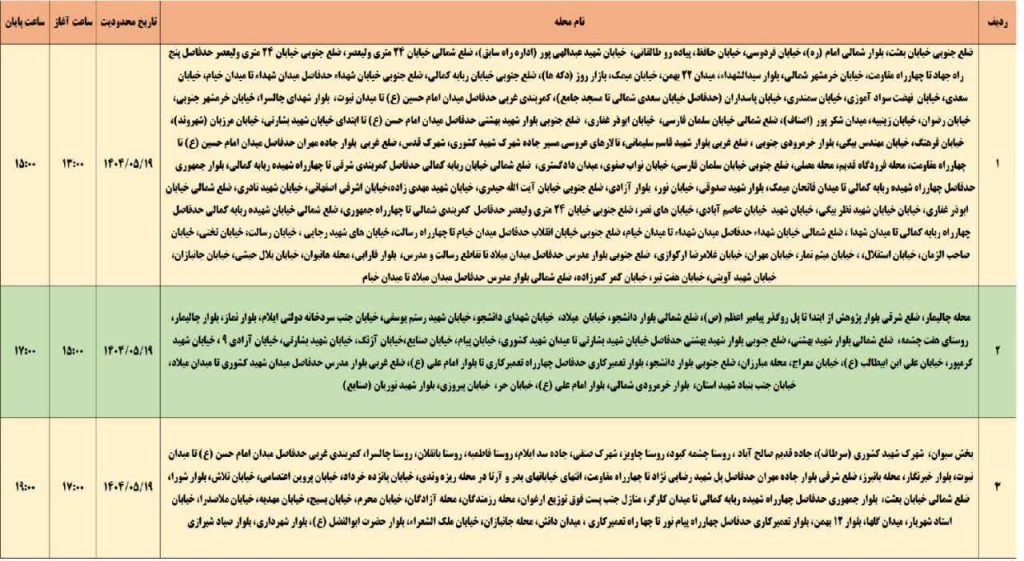 ردیف نام محله تاریخ محدودیت ساعت آغاز ساعت پایان
ضلع جنوبی خیابان بعثت، بلوار شمالی امام (ره)، خیابان فردوسی، خیابان حافظ، پیاده رو طالقانی، خیابان شهید عبدالهی پور (اداره راه سابق)، ضلع شمالی خیابان ۲۴ متری ولیعصر، ضلع جنوبی خیابان ۲۴ متری ولیعصر حدفاصل پنج
راه جهاد تا چهارراه مقاومت، خیابان خرمشهر شمالی، بلوار سیدالشهداء، میدان ۲۲ بهمن، خیابان میمک، بازار روز (دکه ها)، ضلع جنوبی خیابان ربابه کمالی، ضلع جنوبی خیابان شهداء حدفاصل میدان شهداء تا میدان خیام، خیابان
سعدی، خیابان نهضت سواد آموزی، خیابان سمندری، خیابان پاسداران (حدفاصل خیابان سعدی شمالی تا مسجد جامع)، کمربندی غربی حدفاصل میدان امام حسین (ع) تا میدان نبوت، بلوار شهدای چالسرا، خیابان خرمشهر جنوبی،
خیابان رضوان، خیابان زینبیه، میدان شکر پور (اصناف)، ضلع شمالی خیابان سلمان فارسی، خیابان ابوذر غفاری، ضلع جنوبی بلوار شهید بهشتی حدفاصل میدان امام حسن (ع) تا ابتدای خیابان شهید بشارتی، خیابان مرزبان (شهروند)،
خیابان فرهنگ، خیابان مهندس بیگی، بلوار خرمرودی جنوبی، ضلع غربی بلوار شهید قاسم سلیمانی، تالارهای عروسی مسیر جاده شهرک شهید کشوری، شهرک قدس، ضلع غربی بلوار جاده مهران حدفاصل میدان امام حسین (ع) تا
چهارراه مقاومت، محله فرودگاه قدیم، محله مصلی، ضلع جنوبی خیابان سلمان فارسی، خیابان نواب صفوی، میدان دادگستری، ضلع شمالی خیابان ربابه کمالی حدفاصل کمربندی شرقی تا چهارراه شهیده ربابه کمالی، بلوار جمهوری
حدفاصل چهارراه شهیده ربابه کمالی تا میدان فاتحان میمک، بلوار شهید صدوقی، خیابان نور، بلوار آزادی، ضلع جنوبی خیابان آیت الله حیدری، خیابان شهید مهدی زاده، خیابان اشرفی اصفهانی، خیابان شهید نادری، ضلع شمالی خیابان
ابوذر غفاری، خیابان خیابان شهید نظر بیگی، خیابان شهید عاصم آبادی، خیابان های نصر، ضلع جنوبی خیابان ۲۴ متری ولیعصر حدفاصل کمربندی شمالی تا چهارراه جمهوری، ضلع شمالی خیابان شهیده ربابه کمالی حدفاصل
۱ ۱۴۰۴/۰۵/۱۹ ۱۳:۰۰ ۱۵:۰۰
چهارراه ربابه کمالی تا میدان شهدا، ضلع شمالی خیابان شهداء حدفاصل میدان شهداء تا میدان خیام، ضلع جنوبی خیابان انقلاب حدفاصل میدان خیام تا چهارراه رسالت، خیابان های شهید رجایی، خیابان رسالت، خیابان تختی، خیابان
صاحب الزمان، خیابان استقلال،، خیابان میثم تمار، خیابان مهران، خیابان غلامرضا ارکوازی، ضلع جنوبی بلوار مدرس حدفاصل میدان میلاد تا تقاطع رسالت و مدرس، بلوار فارابی، محله هانیوان، خیابان بلال حبشی، خیابان جانبازان،
خیابان شهید آوینی، خیابان هفت تیر، خیابان کمر کمرزاده، ضلع شمالی بلوار مدرس حدفاصل میدان میلاد تا میدان خیام
محله چالیمار، ضلع شرقی بلوار پژوهش از ابتدا تا پل روگذر پیامبر اعظم (ص)، ضلع شمالی بلوار دانشجو، خیابان میلاد، خیابان شهدای دانشجو، خیابان شهید رستم یوسفی، خیابان جنب سردخانه دولتی ایلام، بلوار نماز، بلوار چالیمار،
روستای هفت چشمه، ضلع شمالی بلوار شهید بهشتی، ضلع جنوبی بلوار شهید بهشتی حدفاصل خیابان شهید بشارتی تا میدان شهید کشوری، خیابان پیام، خیابان صنایع، خیابان آژنگ، خیابان شهید بشارتی، خیابان آزادی ۹، خیابان شهید
۲ ۱۴۰۴/۰۵/۱۹ ۱۵:۰۰ ۱۷:۰۰
کرمپور، خیابان علی ابن ابیطالب (ع)، خیابان معراج، محله مبارزان، ضلع جنوبی بلوار دانشجو، بلوار تعمیرکاری حدفاصل چهارراه تعمیرکاری تا بلوار امام علی (ع)، ضلع غربی بلوار مدرس حدفاصل میدان شهید کشوری تا میدان میلاد،
خیابان جنب بنیاد شهید استان، بلوار خرمرودی شمالی، بلوار امام علی (ع)، خیابان حر، خیابان پیروزی، بلوار شهید نوریان (صنایع)
بخش سیوان، شهرک شهید کشوری (سرطاف)، جاده قدیم صالح آباد، روستا چشمه کبود، روستا چاویز، شهرک صنفی، جاده سد ایلام، روستا فاطمیه، روستا بانقلان، روستا چالسرا، کمربندی غربی حدفاصل میدان امام حسن (ع) تا میدان
نبوت، بلوار خبرنگار، محله بانبرز، ضلع شرقی بلوار جاده مهران حدفاصل پل شهید رضایی نژاد تا چهارراه مقاومت، انتهای خیابانهای بدر و آرتا در محله ریزه وندی، خیابان پانزده خرداد، خیابان پروین اعتصامی، خیابان تلاش، بلوار شورا،
۳ ۱۴۰۴/۰۵/۱۹ ۱۷:۰۰ ۱۹:۰۰
ضلع شمالی خیابان بعثت، بلوار جمهوری حدفاصل چهارراه شهیده ربابه کمالی تا میدان کارگر، منازل جنب پست فوق توزیع ارغوان، محله رزمندگان، محله آزادگان، خیابان محرم، خیابان بسیج، خیابان مهدیه، خیابان ملاصدرا، خیابان
استاد شهریار، میدان گلها، بلوار ۱۲ بهمن، بلوار تعمیرکاری حدفاصل چهارراه پیام نور تا چها راه تعمیرکاری، میدان دانش، محله جانبازان، خیابان ملک الشعراء، بلوار حضرت ابوالفضل (ع)، بلوار شهرداری، بلوار صیاد شیرازی